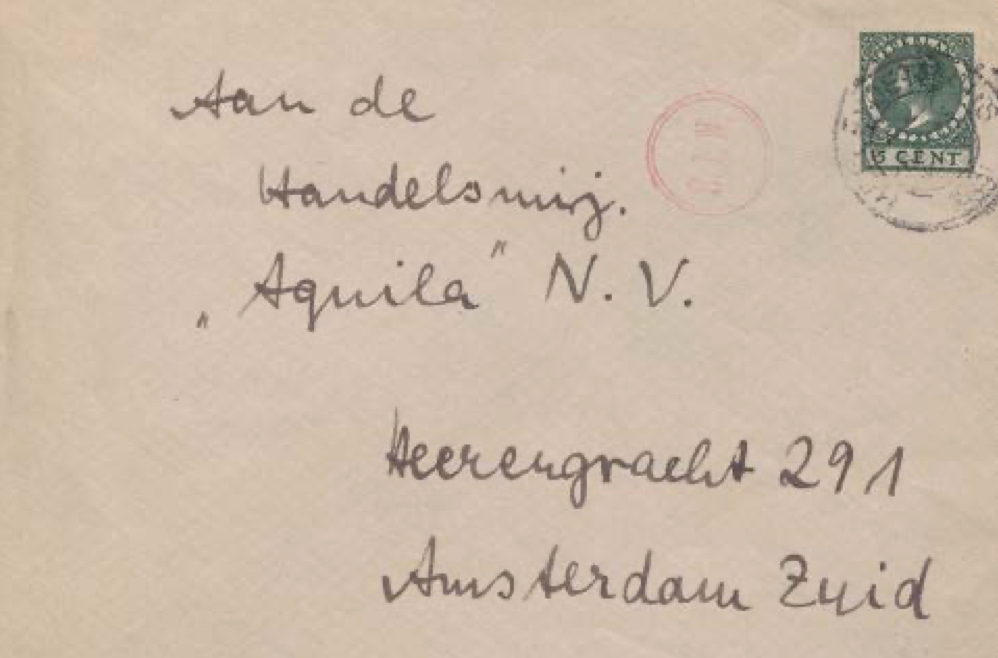 Aan de
Handelsmij.
„Aquila" N.V.
Heerengracht 291
Amsterdam Zuid
NEDERLAND
15 CENT